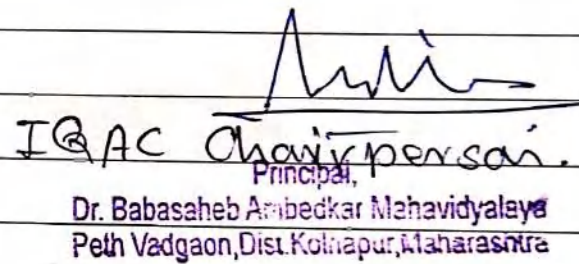 IQAC Chairperson.
Principal,
Dr. Babasaheb Ambedkar Mahavidyalaya
Peth Vadgaon, Dist. Kolhapur, Maharashtra